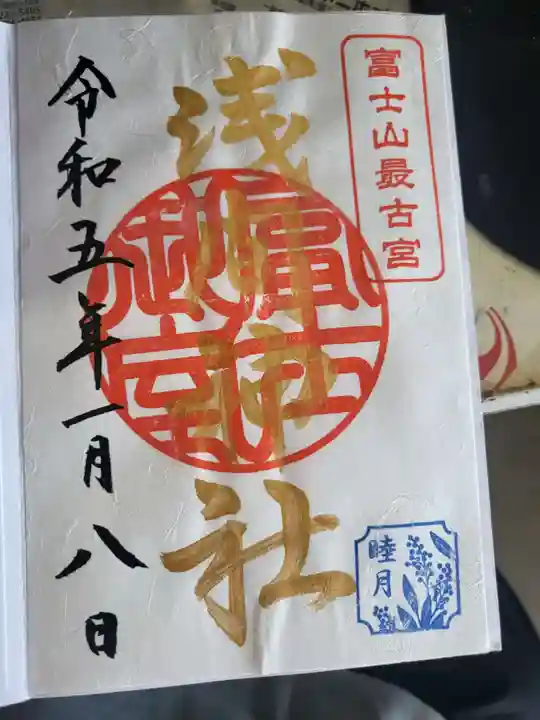 富士山最古宮
浅間神社
富士御室
令和五年一月八日
睦月